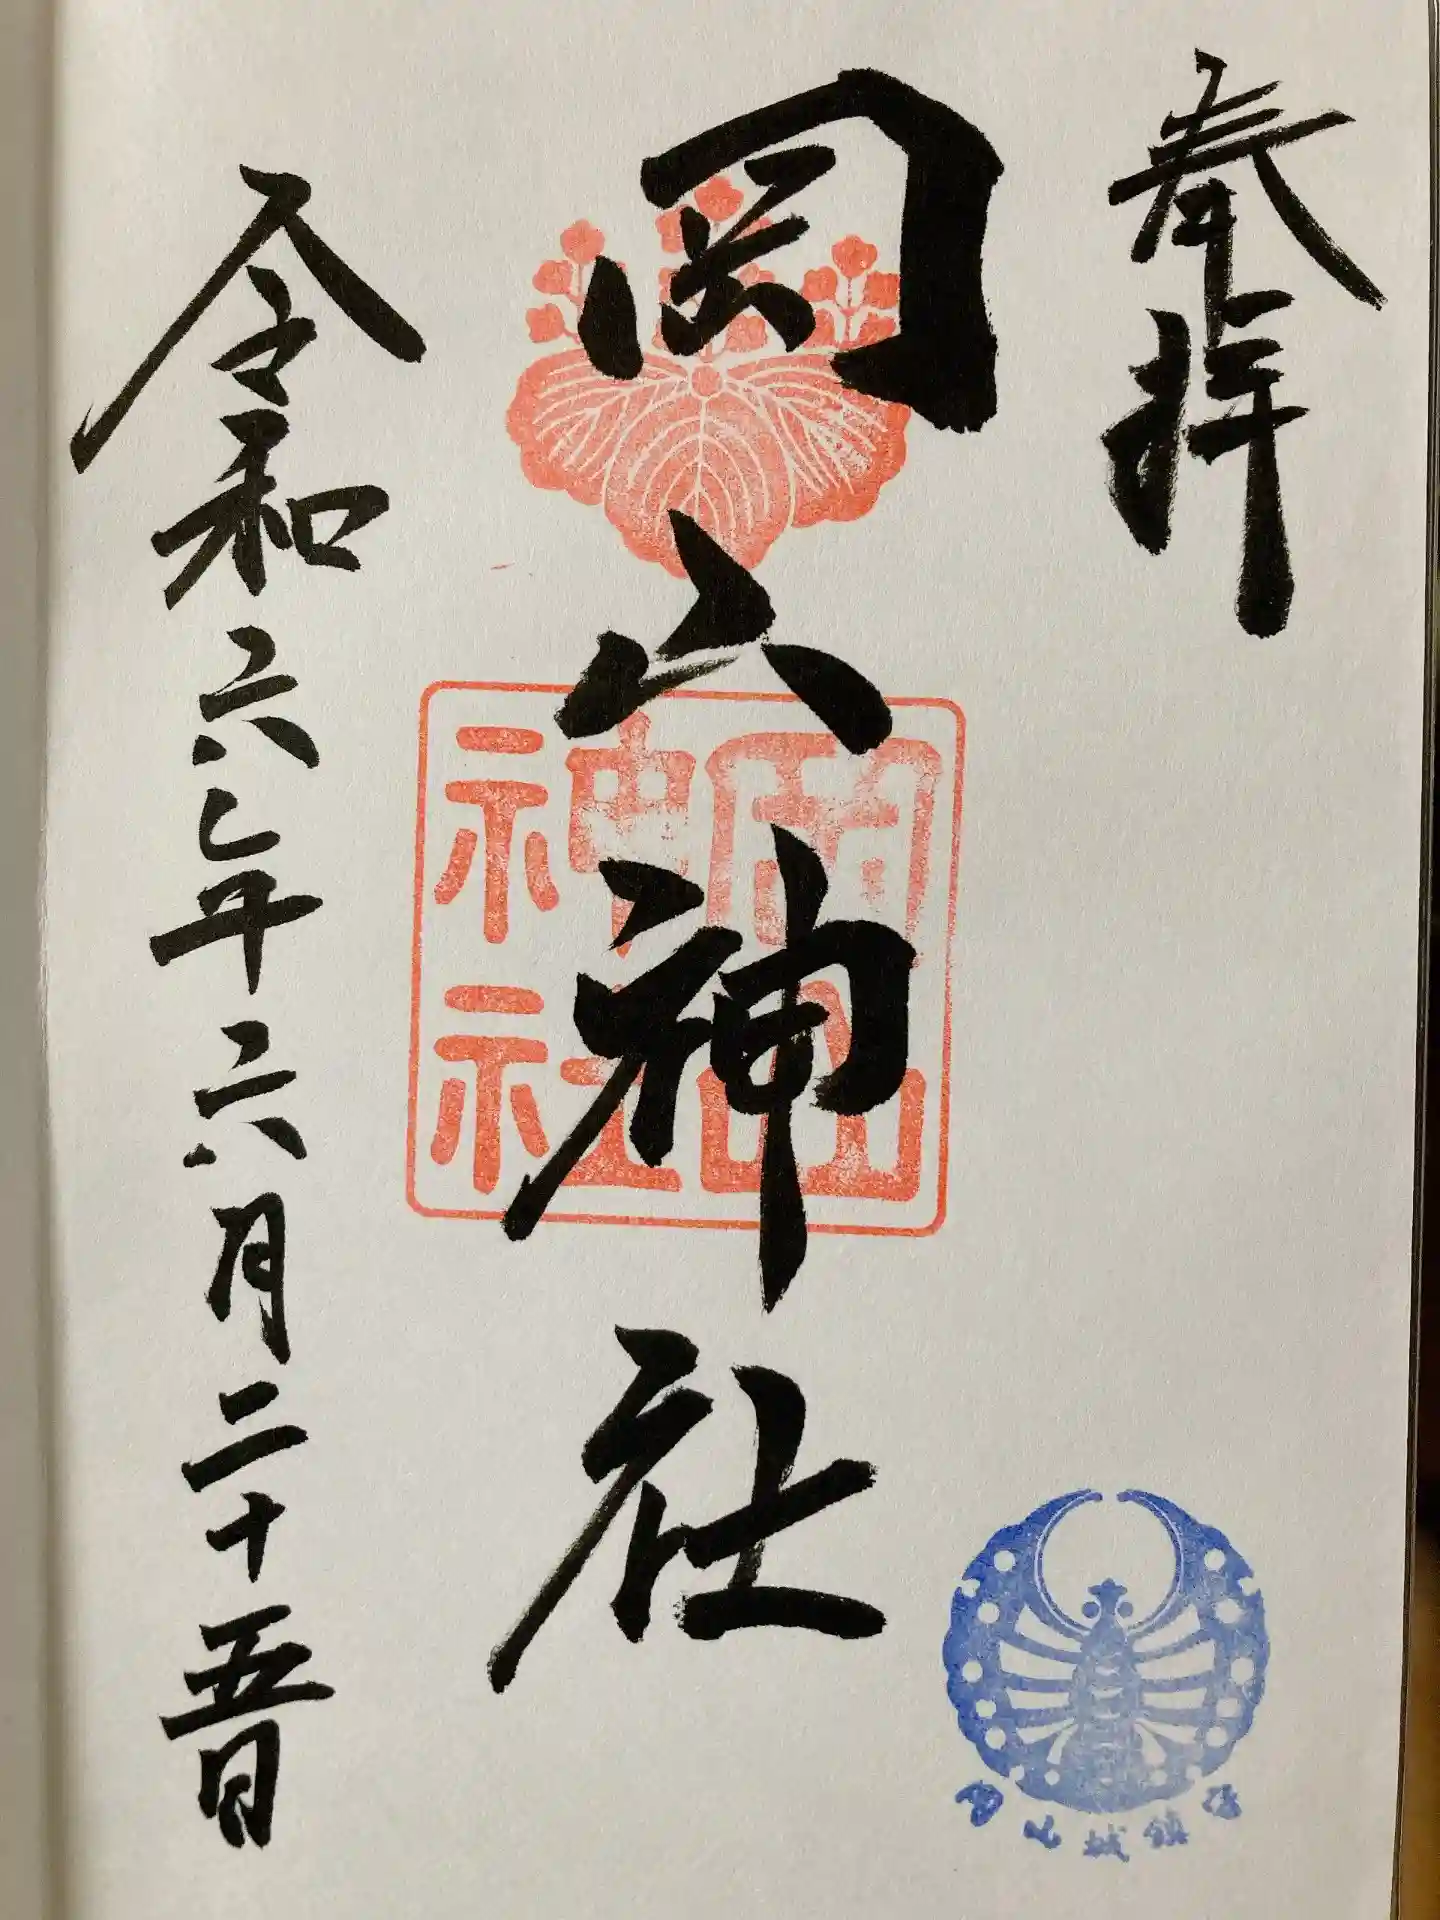 奉拝
岡山神社
岡山
神社
令和六年六月二十五日
岡山城鎮守